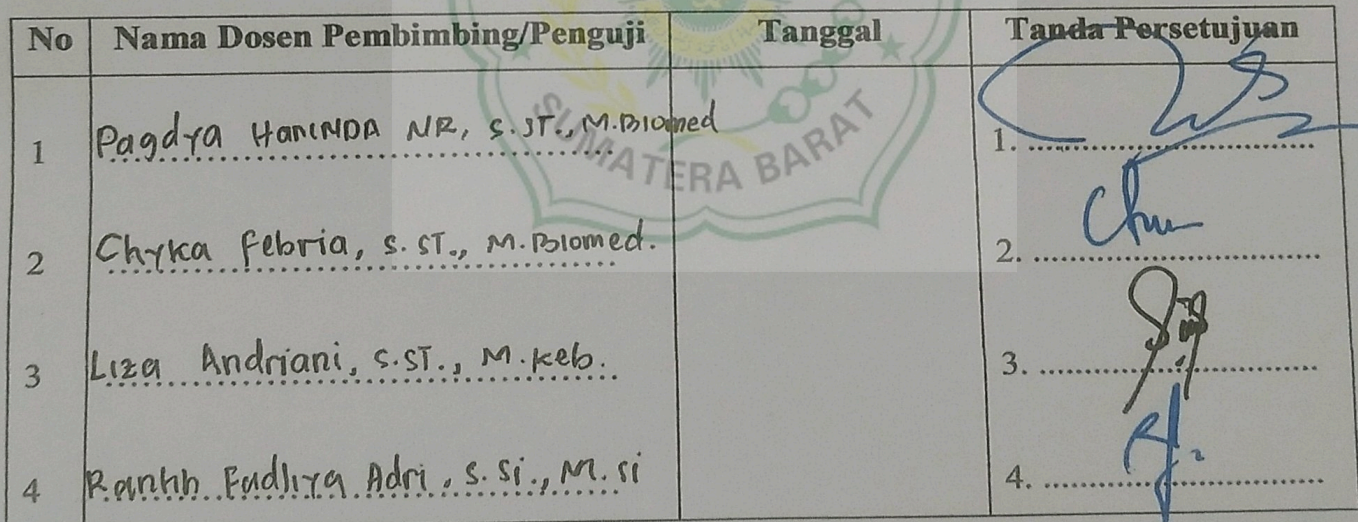 No Nama Dosen Pembimbing/Penguji Tanggal Tanda Persetujuan
1 Pagdya Haninda NR, S.ST., M.Biomed 1.
2 Chyka Febria, S.ST., M.Biomed. 2.
3 Liza Andriani, S.ST., M.Keb. 3.
4 Fadhiya Adri, S.Si., M.Si 4.
SUMATERA BARAT